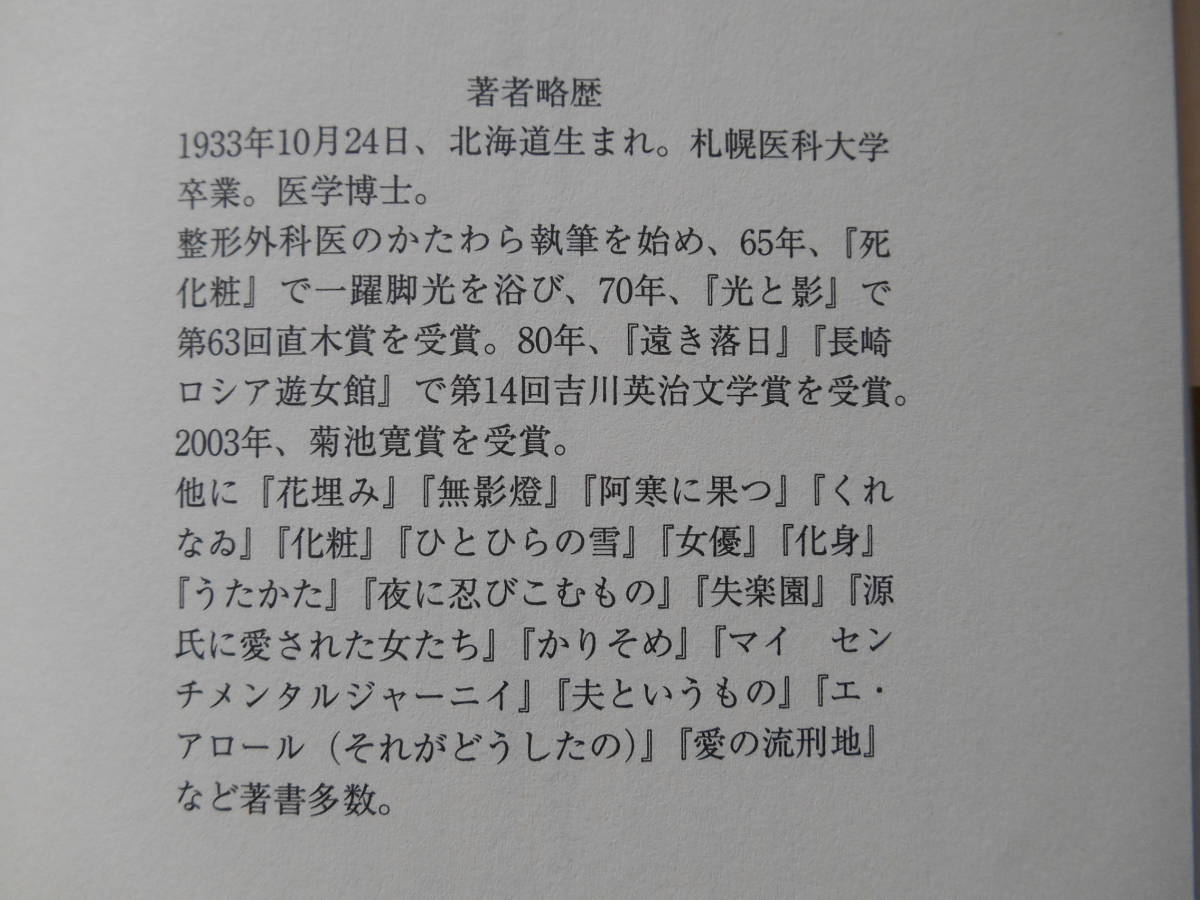 著者略歴
1933年10月24日、北海道生まれ。札幌医科大学
卒業。医学博士。
整形外科医のかたわら執筆を始め、65年、『死
化粧』で一躍脚光を浴び、70年、『光と影』で
第63回直木賞を受賞。80年、『遠き落日』『長崎
ロシア遊女館』で第14回吉川英治文学賞を受賞。
2003年、菊池寛賞を受賞。
他に『花埋み』『無影燈』『阿寒に果つ』『くれ
なゐ』『化粧』『ひとひらの雪』『女優』『化身』
『うたかた』『夜に忍びこむもの』『失楽園』『源
氏に愛された女たち』『かりそめ』『マイ　セン
チメンタルジャーニイ』『夫というもの』『エ・
アロール（それがどうしたの）』『愛の流刑地』
など著書多数。